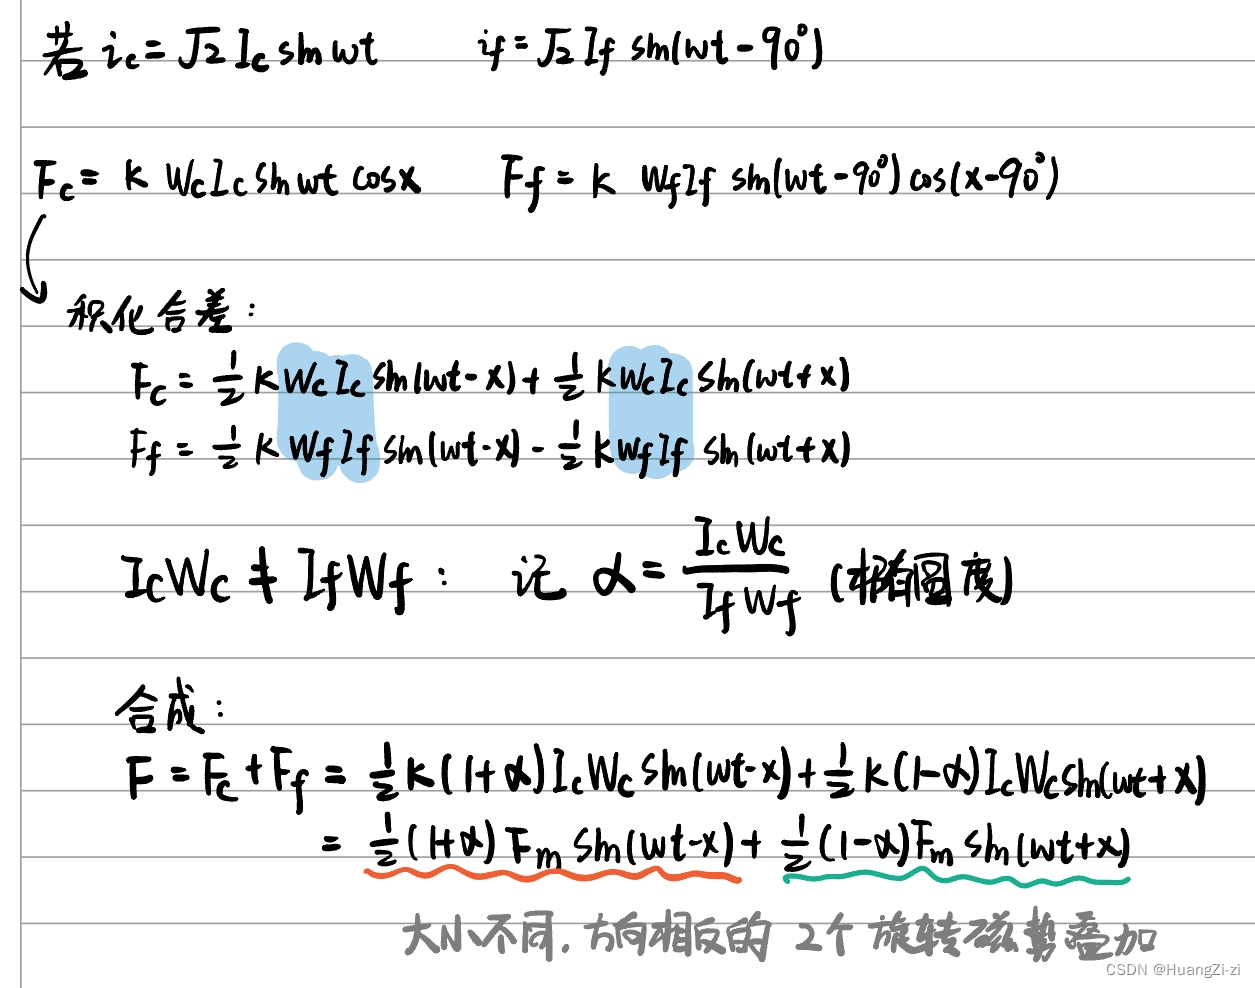 若 ic = √2 Ic sin wt if = √2 If sin(wt - 90°)
Fc = k Wc Ic sin wt cos x Ff = k Wf If sin(wt - 90°) cos(x - 90°)
积化合差：
Fc = 1/2 k Wc Ic sin(wt - x) + 1/2 k Wc Ic sin(wt + x)
Ff = 1/2 k Wf If sin(wt - x) - 1/2 k Wf If sin(wt + x)
Ic Wc ≠ If Wf： 记 α = Ic Wc / If Wf (椭圆度)
合成：
F = Fc + Ff = 1/2 k (1+α) Ic Wc sin(wt - x) + 1/2 k (1-α) Ic Wc sin(wt + x)
= 1/2 (1+α) Fm sin(wt - x) + 1/2 (1-α) Fm sin(wt + x)
大小不同，方向相反的 2个 旋转磁势叠加
CSDN @HuangZi-zi